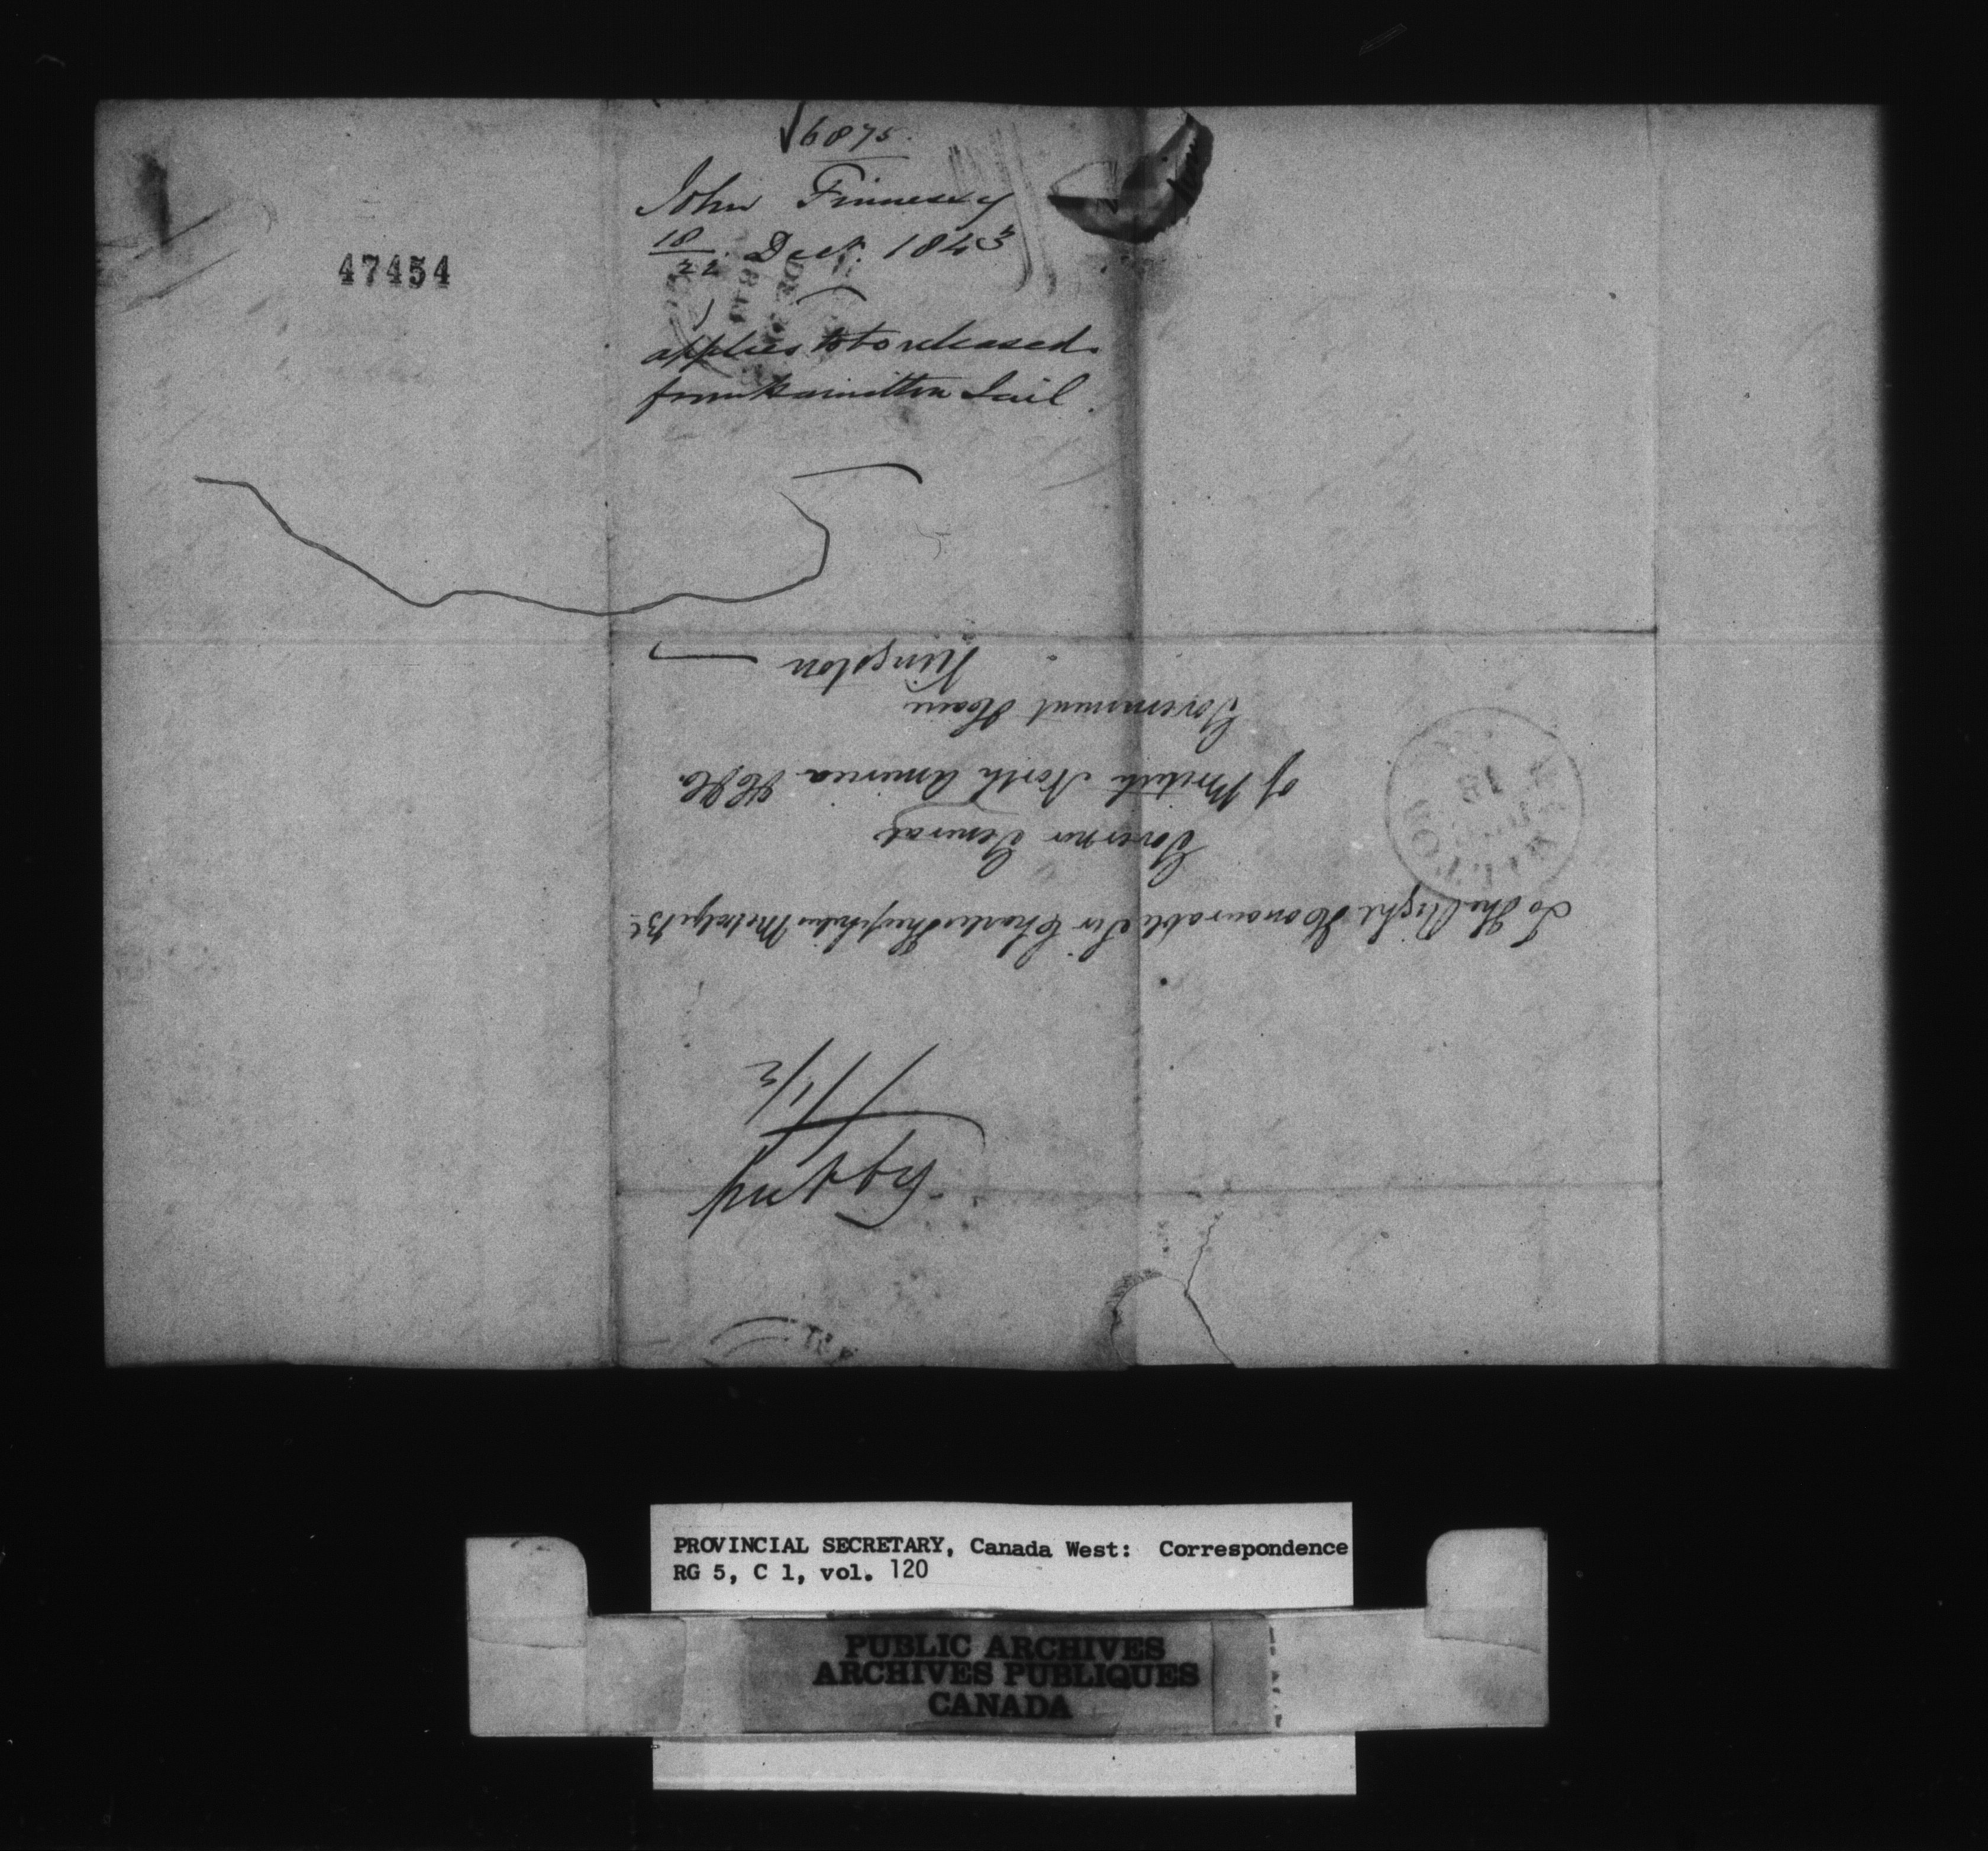 6875
John Finnessy
18/22 Decr. 1843
47454
applies to be released
from Hamilton Jail
To The Right Honourable Sir Charles Theophilus Metcalfe Bt
Governor General
of British North America &c &c
Government House
Kingston
1/1/2
HAMILTON
18
PROVINCIAL SECRETARY, Canada West: Correspondence
RG 5, C 1, vol. 120
PUBLIC ARCHIVES
ARCHIVES PUBLIQUES
CANADA